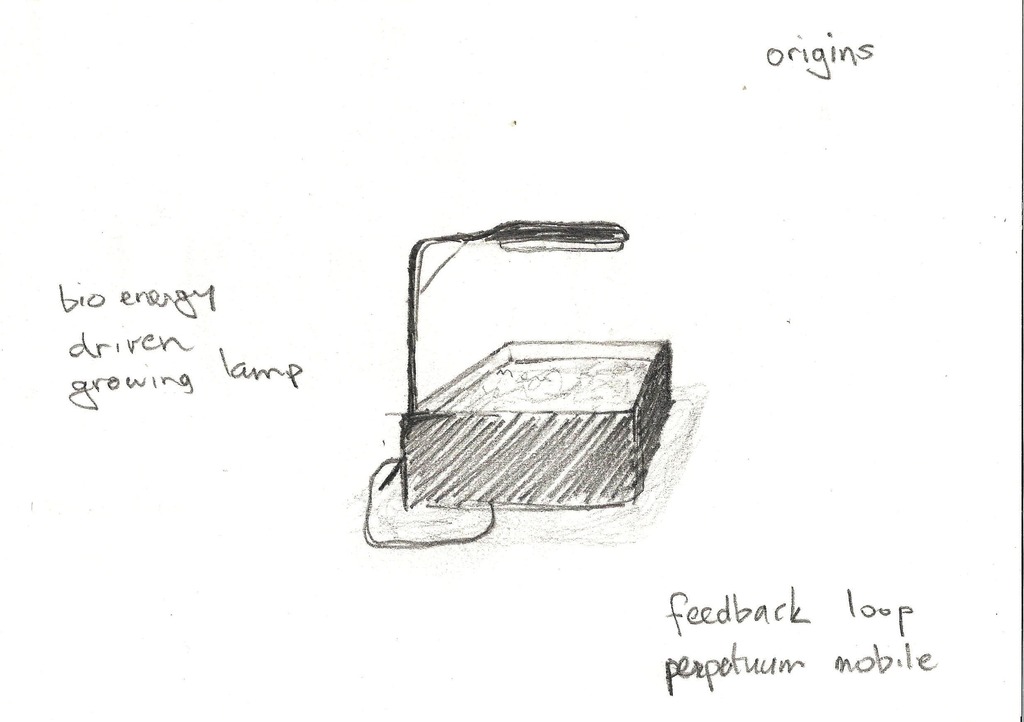 origins
bio energy
driven
growing lamp
feedback loop
perpetuum mobile